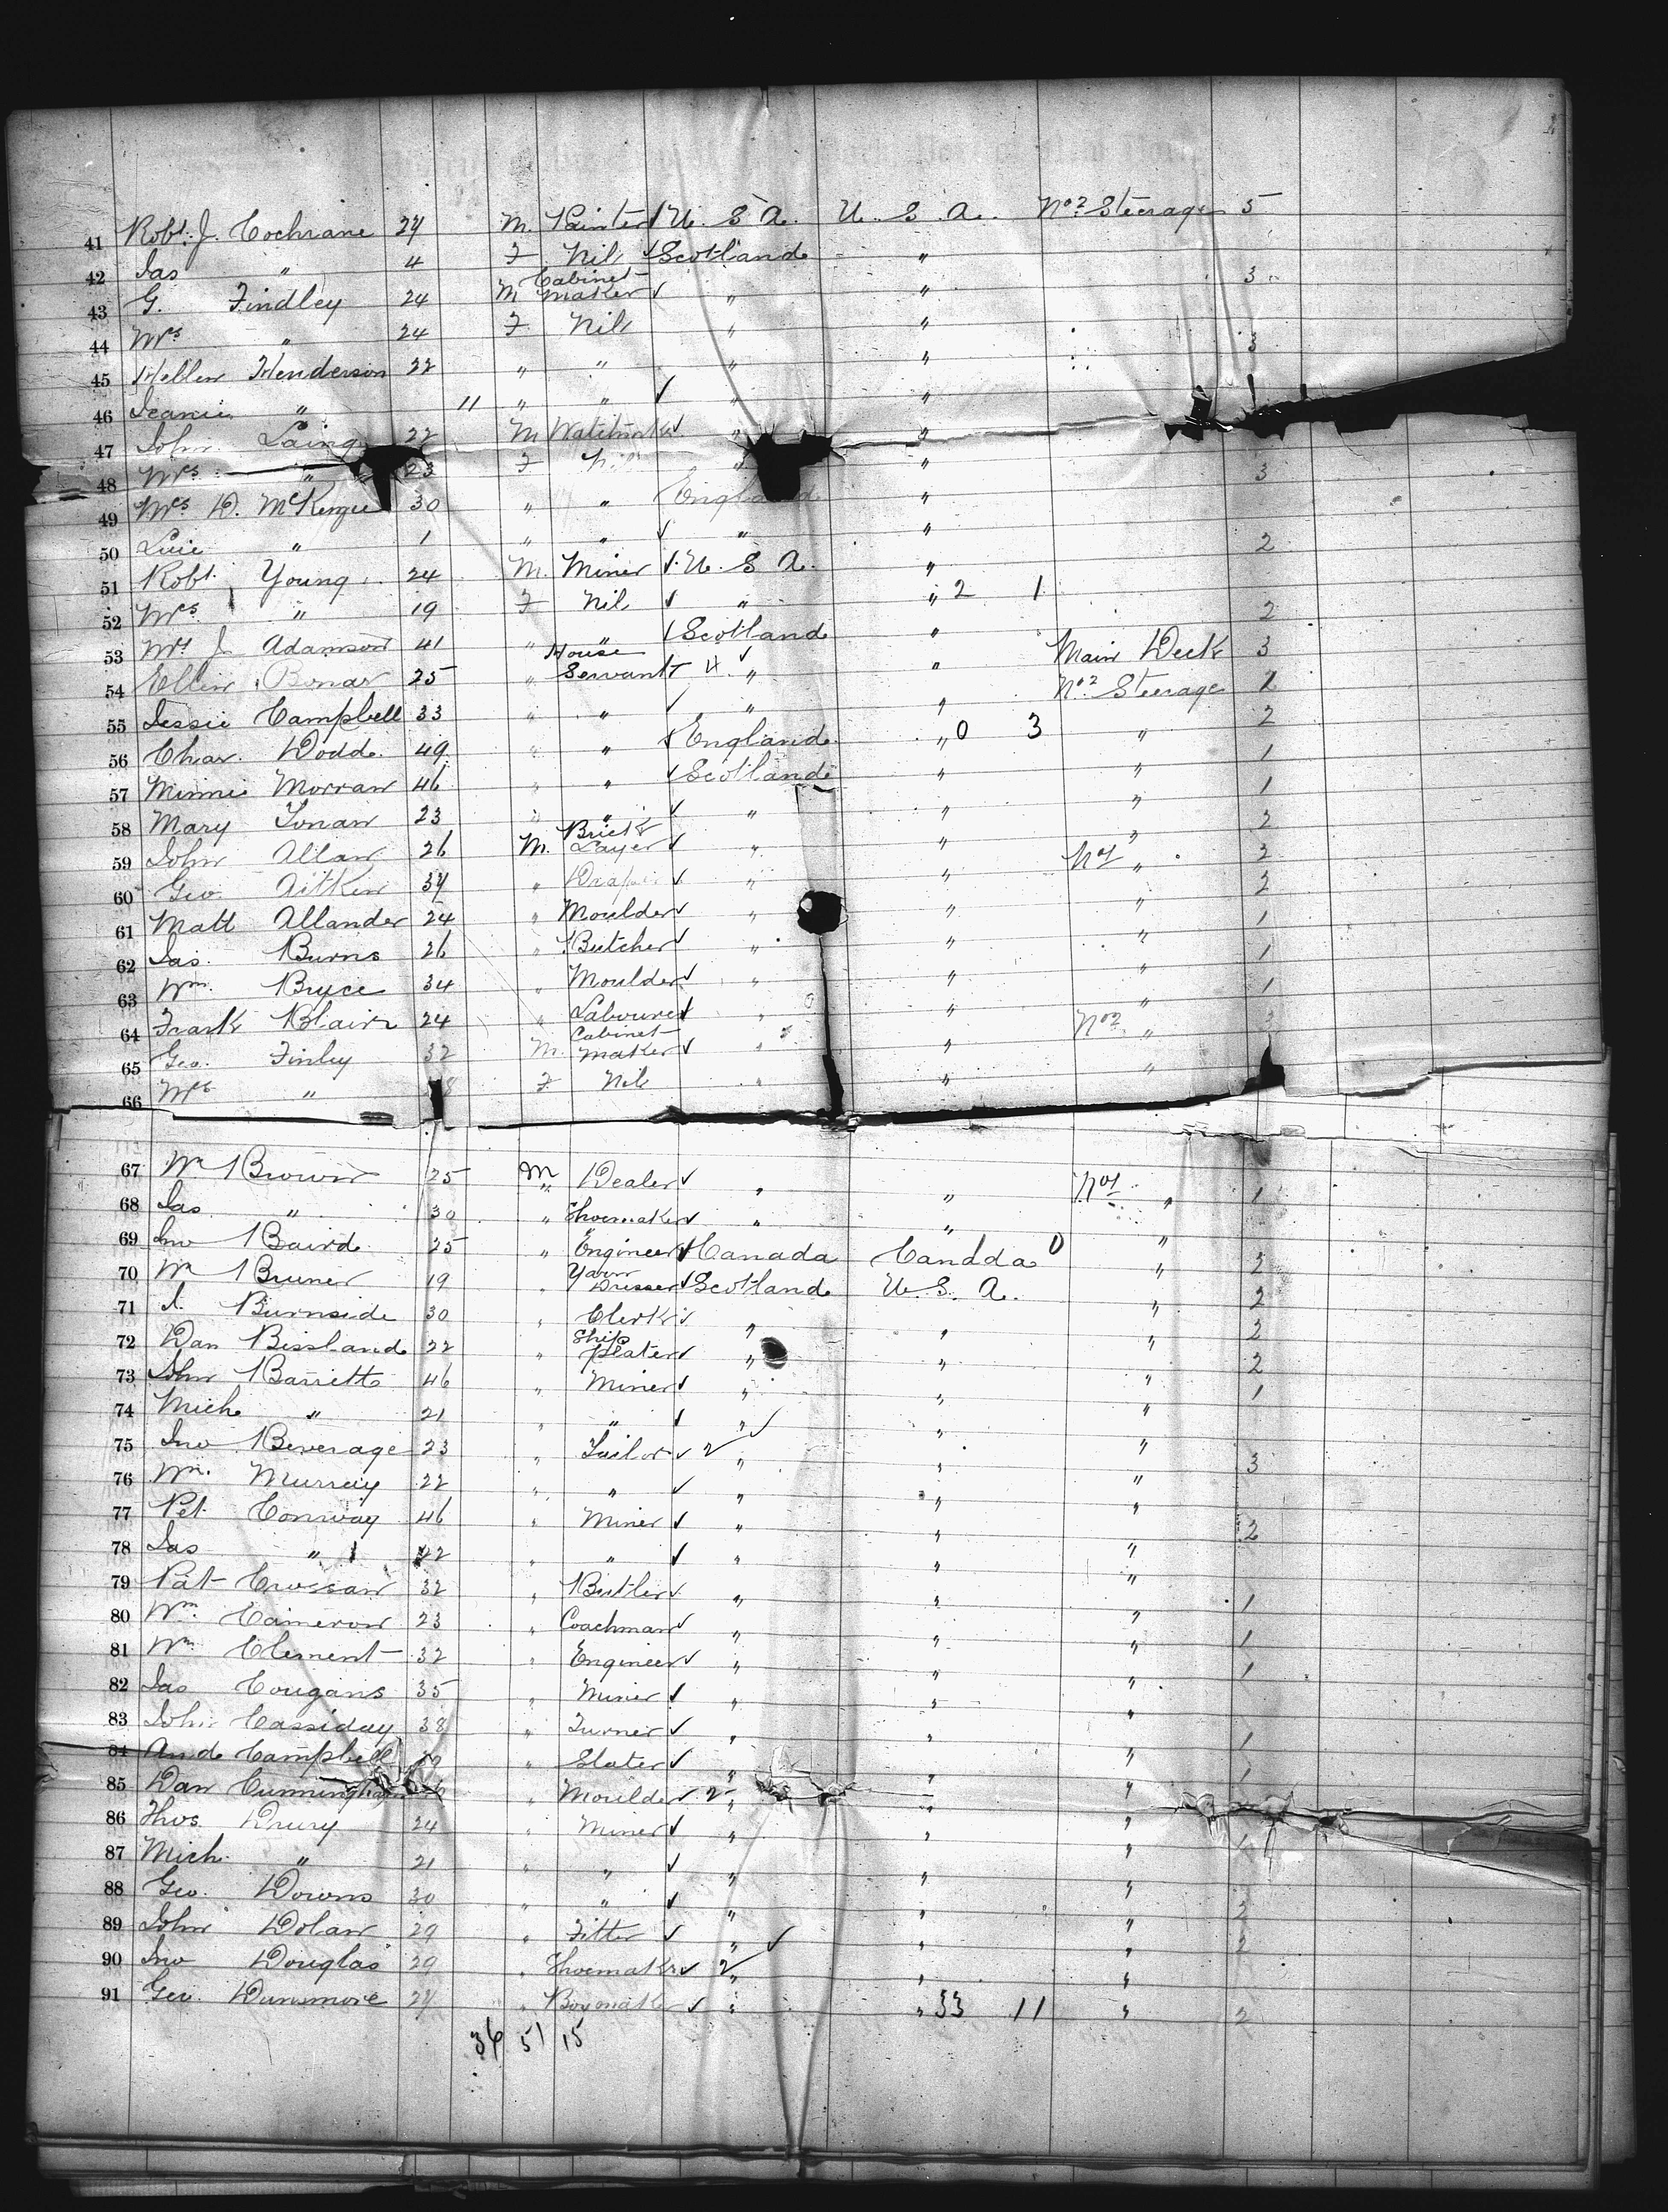 41 Robt. J. Cochrane 24 M. Painter U. S. A. U. S. A. No. 2 Steerage 5
42 Jas " 4 F Nil Scotland "
43 G. Findley 24 M Cabinet Maker " " 3
44 Mrs " 24 F Nil " "
45 Hellen Henderson 22 " " " " 3
46 Jeanie " 11 " " " "
47 John Laing 22 M " "
48 Mrs " 23 F Nil " " 3
49 Mrs D. McKenzie 30 " " England "
50 " 1 " " " " 2
51 Robt. Young 24 M. Miner U. S. A. "
52 Mrs " 19 F Nil " " 2 1 2
53 Mrs J Adamson 41 " " Scotland " Main Deck 3
54 Ellen Bonar 25 " House Servant 4 " " No. 2 Steerage 2
55 Jessie Campbell 33 " " " " 2
56 Char. Dodd 49 " " England " 0 3 " 1
57 Minnie Morran 46 " " Scotland " " 1
58 Mary 23 " " " " " 2
59 John Allan 26 M. Brick Layer " " No 1 " 2
60 Geo. Aitken " Draper " " " 2
61 Matt Allander 24 " Moulder " " " 1
62 Jas. Burns 26 " Butcher " " " 1
63 Wm. Bryce 34 " Moulder " " " 1
64 Frank Blair 24 " Labourer " No 2 "
65 Geo. Finley 32 M. Cabinet Maker " " "
66 Mrs " F Nil " "
67 Wm Brown 25 M " Dealer " " No 1 " 1
68 Jas " 30 " Shoemaker " " "
69 Jno Baird 25 " Engineer Canada Candda 0 " 2
70 Wm Bruner 19 " Yarn Dresser Scotland U. S. A. " 2
71 J. Burnside 30 " Clerk " " " 2
72 Dan Bissland 22 " Ship plater " " " 2
73 John Barrett 46 " Miner " " " 1
74 Mich " 21 " " " " "
75 Jno Beverage 23 " Tailor 2 " " " 3
76 Wm. Murray 22 " " " " "
77 Pet. Conway 46 " Miner " " " 2
78 Jas " 22 " " " " "
79 Pat Crossan 32 " Butler " " " 1
80 Wm. Cameron 23 " Coachman " " " 1
81 Wm Clement 32 " Engineer " " " 1
82 Jas Cougans 35 " Miner " " "
83 John Cassiday 38 " Turner " " " 1
84 And Campbell " Slater " " " 1
85 Dan Cunningham " Moulder 2 " " "
86 Thos. Drury 24 " Miner " " " 1
87 Mich. " 21 " " " " "
88 Geo. Downs 30 " " " " " 2
89 John Dolan 29 " Fitter " " " 2
90 Jno Douglas 29 " Shoemaker 2 " " "
91 Geo. Dunsmore " Boxmaker " " 33 11 " 2
36 51 15